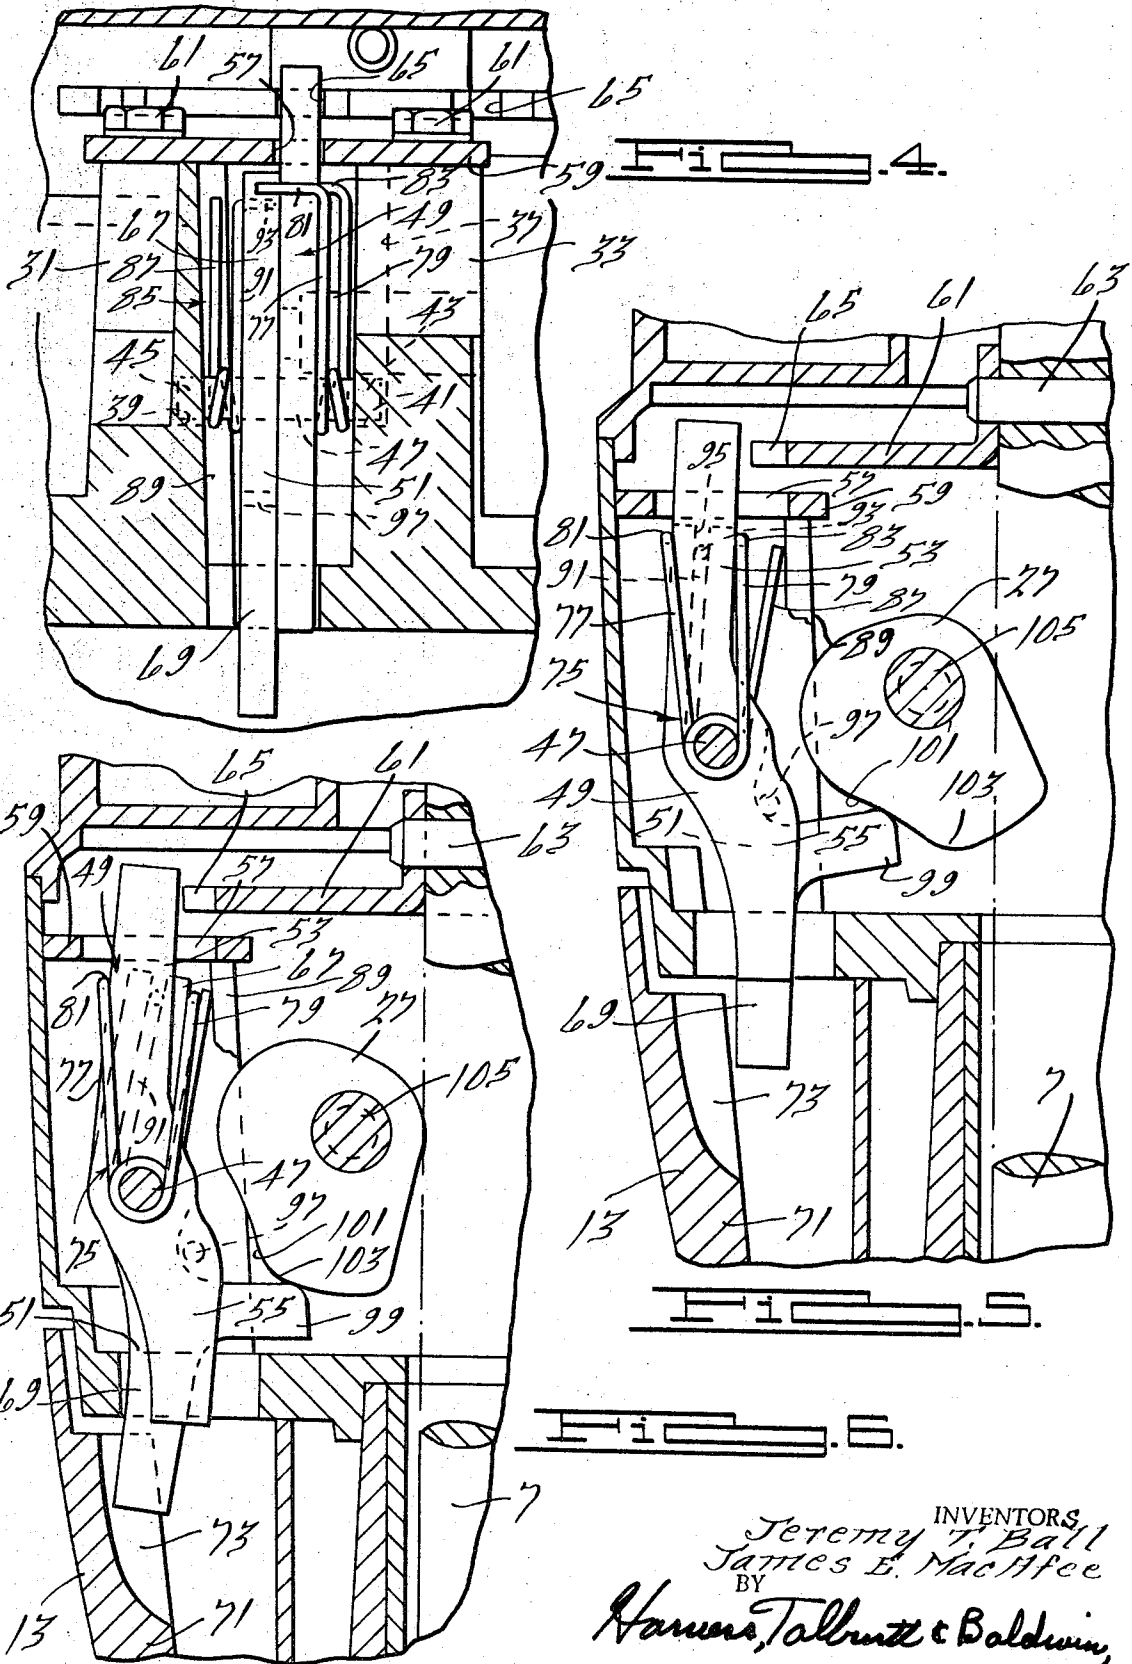 61
57
65
61
65
Fig. 4.
59
83
67
93
81
49
37
33
31
87
91
79
85
77
43
45
41
39
47
89
51
97
69
65
61
63
95
57
59
81
93
83
53
91
79
87
27
77
89
105
75
97
47
101
49
103
51
55
99
69
73
7
13
71
Fig. 5.
65
61
59
63
49
57
53
67
89
81
79
27
77
105
91
47
97
101
75
103
51
55
99
69
7
73
13
71
Fig. 6.
INVENTORS
Jeremy T. Ball
James E. MacAfee
BY
Harness, Talburtt & Baldwin,